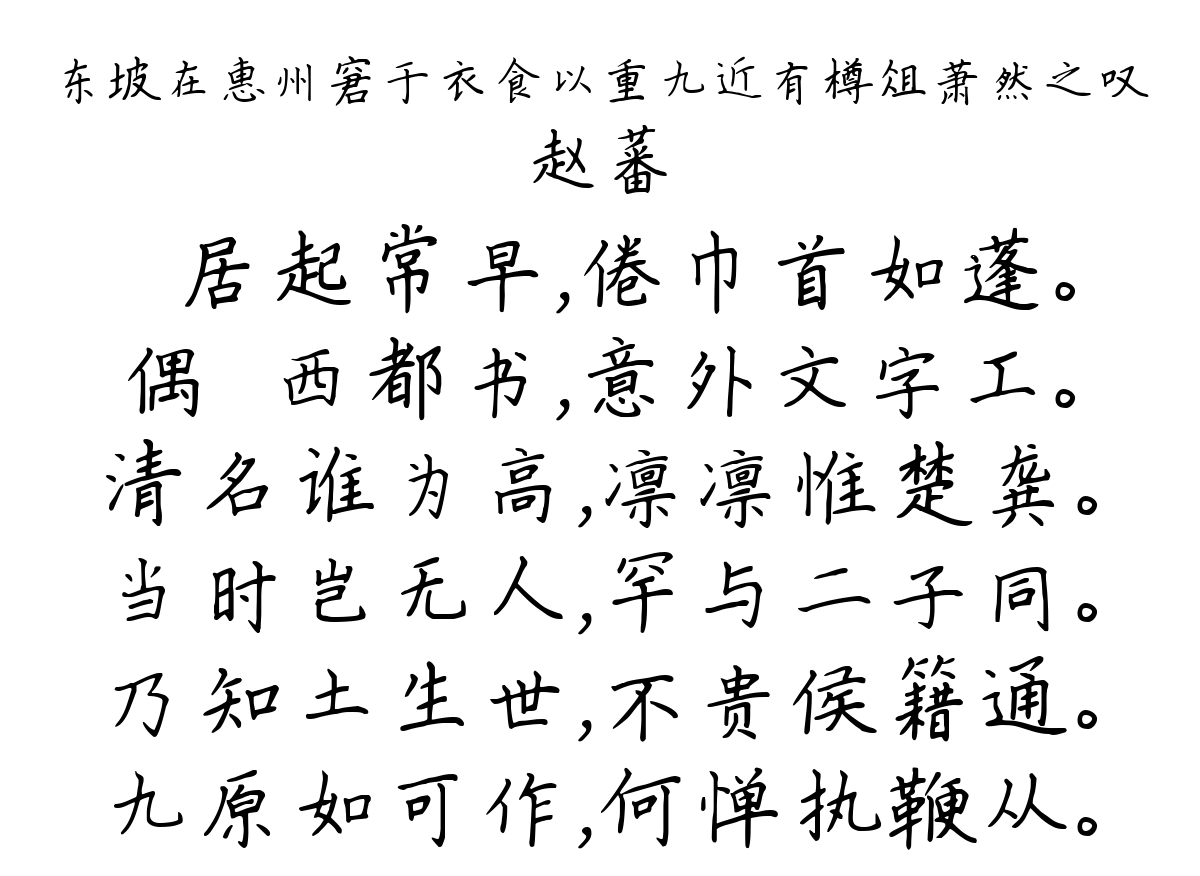 东坡在惠州窘于衣食以重九近有樽俎萧然之叹
赵蕃
居起常早,倦巾首如蓬。
偶 西都书,意外文字工。
清名谁为高,凛凛惟楚龚。
当时岂无人,罕与二子同。
乃知土生世,不贵侯籍通。
九原如可作,何惮执鞭从。